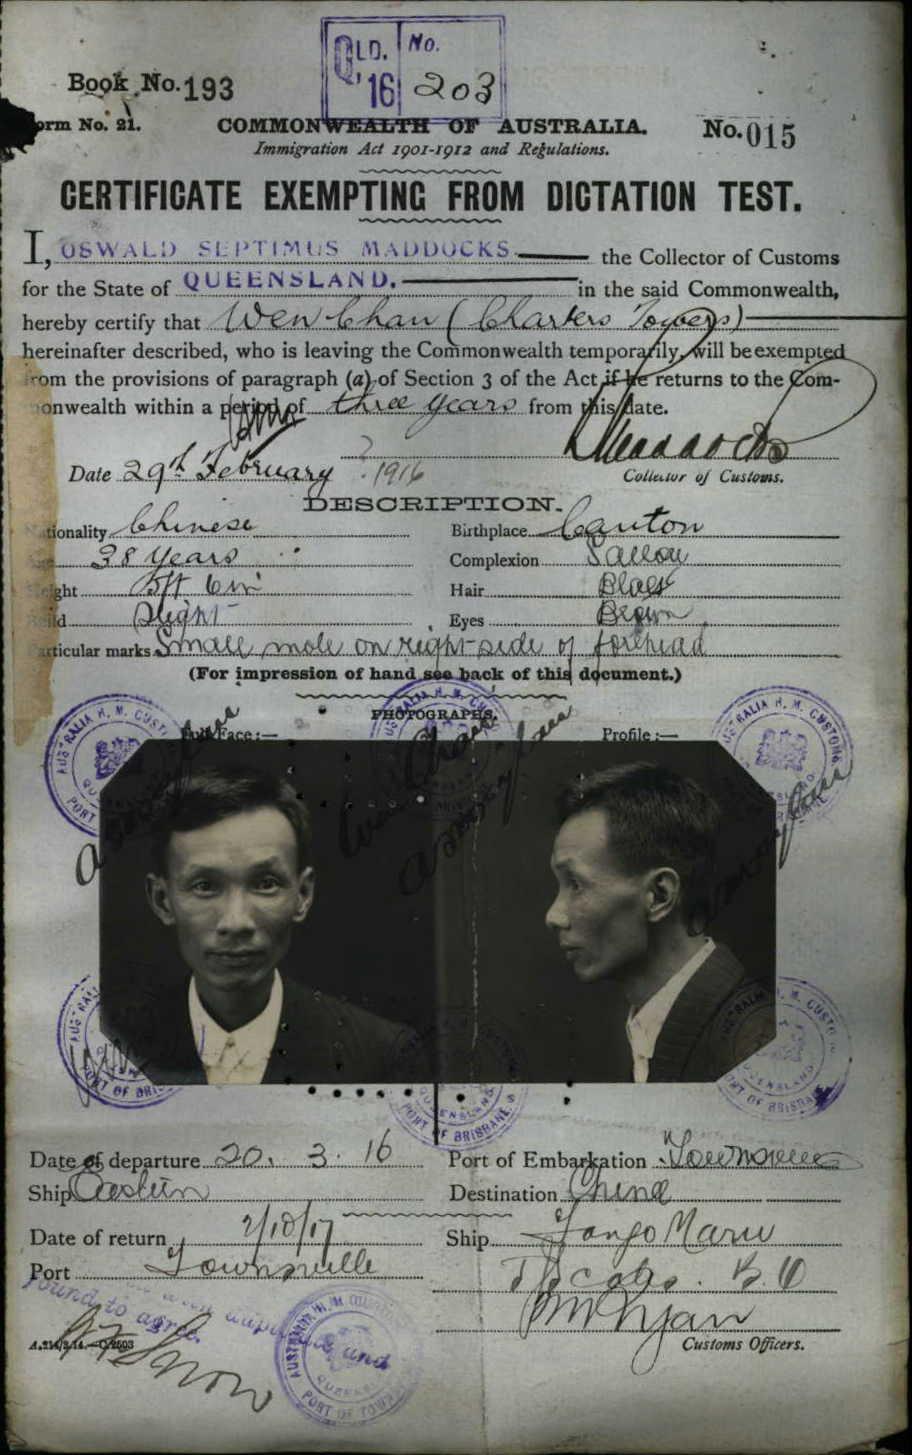 QLD. No.
'16 203
Book No. 193
orm No. 21. COMMONWEALTH OF AUSTRALIA. No. 015
Immigration Act 1901-1912 and Regulations.
CERTIFICATE EXEMPTING FROM DICTATION TEST.
I, OSWALD SEPTIMUS MADDOCKS the Collector of Customs
for the State of QUEENSLAND. in the said Commonwealth,
hereby certify that Wen Chan (Charters Towers)
hereinafter described, who is leaving the Commonwealth temporarily, will be exempted
from the provisions of paragraph (a) of Section 3 of the Act if he returns to the Com-
monwealth within a period of three years from this date.
Maddocks
Date 29th February 1916 Collector of Customs.
DESCRIPTION.
tionality Chinese Birthplace Canton
38 years Complexion Sallow
ight 5ft 6in Hair Black
ld Slight Eyes Brown
articular marks Small mole on right side of forehead
(For impression of hand see back of this document.)
PHOTOGRAPHS.
Full Face:— Profile:—
Date of departure 20. 3. 16 Port of Embarkation Townsville
Ship Eastern Destination China
Date of return 2/10/17 Ship Tango Maru
Port Townsville
found to agree. and
A.214/3.14.—C.2503 Customs Officers.
AUSTRALIA H. M. CUSTOMS
QUEENSLAND
PORT OF BRISBANE